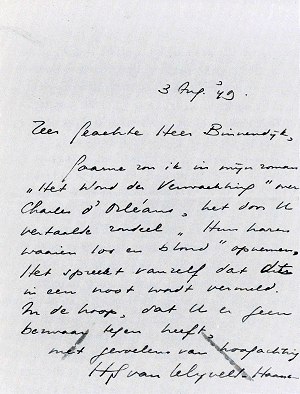 3 Aug. '49
Zeer Geachte Heer Binnendijk,
Gaarne zou ik in mijn roman
„Het Woud der Verwachting" over
Charles d'Orléans, het door U
vertaalde rondeel „Hun haren
waaien los en blond" opnemen.
Het spreekt vanzelf dat dit
in een noot wordt vermeld.
In de hoop, dat U er geen
bezwaar tegen heeft,
met gevoelens van hoogachting
HS van Lelyveld-Haasse